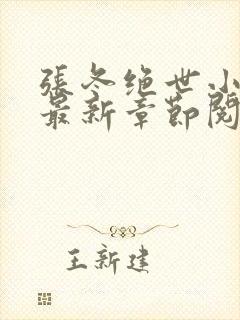 張冬绝世小
最新章節閱
王新建